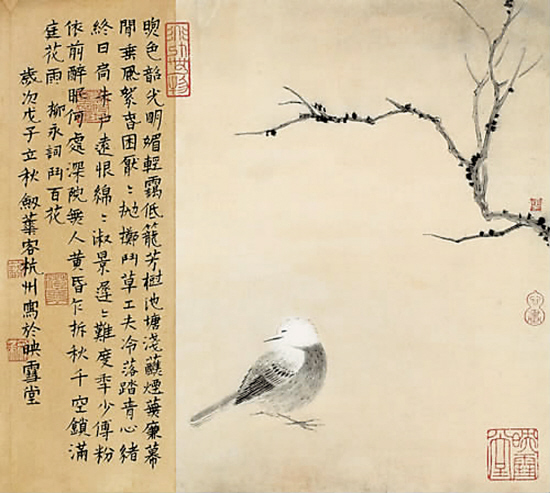 煦色韶光明媚輕靄低籠芳樹池塘淺蘸煙蕪簾幕
閒垂風絮春困厭〻抛擲鬥草工夫冷落踏青心緒
終日扃朱戶遠恨綿〻淑景遲〻難度年少傅粉
依前醉眠何處深院無人黃昏乍拆秋千空鎖滿
庭花雨 柳永詞鬥百花
歲次戊子立秋劍葉客杭州寫於映雪堂
映雪堂